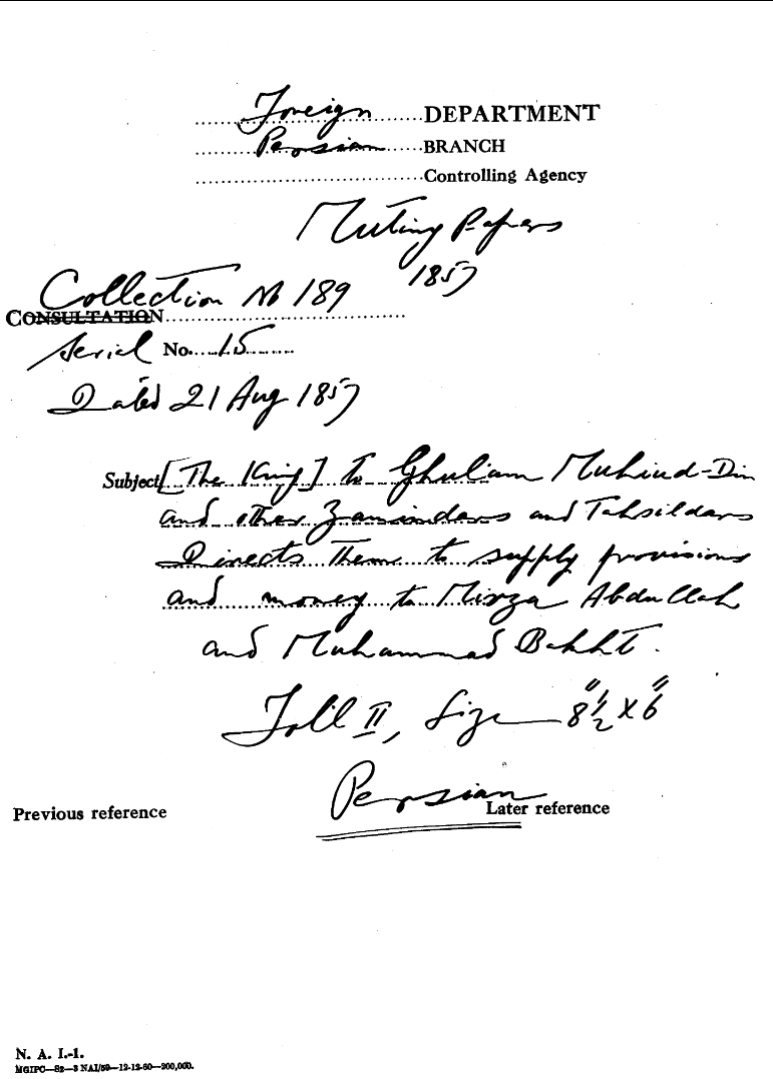 Foreign DEPARTMENT
Persian BRANCH
Controlling Agency
Mutiny Papers
1857
Collection No 189
CONSULTATION
Serial No. 15
Dated 21 Aug 1857
Subject [The King] to Ghulam Muhiud-Din
and other Zamindars and Tahsildars
Directs them to supply provisions
and money to Mirza Abdullah
and Muhammad Bakht.
Foll II, Size 8½" x 6"
Persian
Previous reference Later reference
N. A. I.-1.
MGIPC—S2—3 NAI/59—12-12-60—200,000.